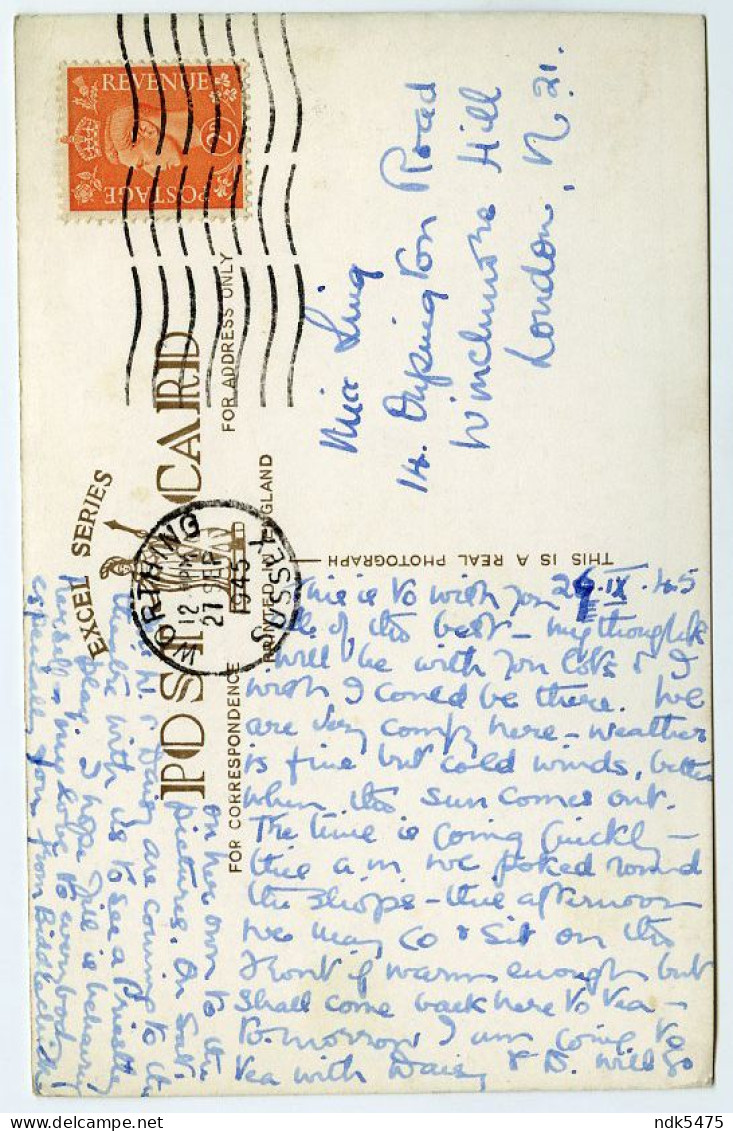 REVENUE
2D
POSTAGE
EXCEL SERIES
POST CARD
FOR ADDRESS ONLY
PRINTED IN ENGLAND
FOR CORRESPONDENCE
THIS IS A REAL PHOTOGRAPH
WORTHING
12 PM
27 SEP
1945
SUSSEX
Miss Ling
14. Orpington Road
Winchmore Hill
London, N. 21.
IX.45
This is to wish you
all of the best – my thoughts
will be with you lots & I
wish I could be there. We
are very comfy here – weather
is fine but cold winds, better
when the sun comes out.
The time is going quickly –
this a.m. we poked round
the shops – this afternoon
we may go & sit on the
front if warm enough but
shall come back here to tea –
Tomorrow I am going to
tea with Daisy & D. will go
on her own to the
pictures. On Sat.
& Daisy are coming to the
theatre with us to see a Priestley
play. I hope is behaving
herself – my love to
especially you from
ndk5475